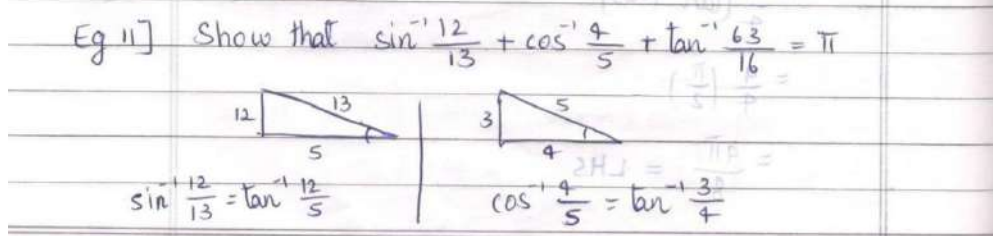 Eg 11] Show that sin⁻¹ 12/13 + cos⁻¹ 4/5 + tan⁻¹ 63/16 = π
12 13 5
3 5 4
sin⁻¹ 12/13 = tan⁻¹ 12/5
cos⁻¹ 4/5 = tan⁻¹ 3/4